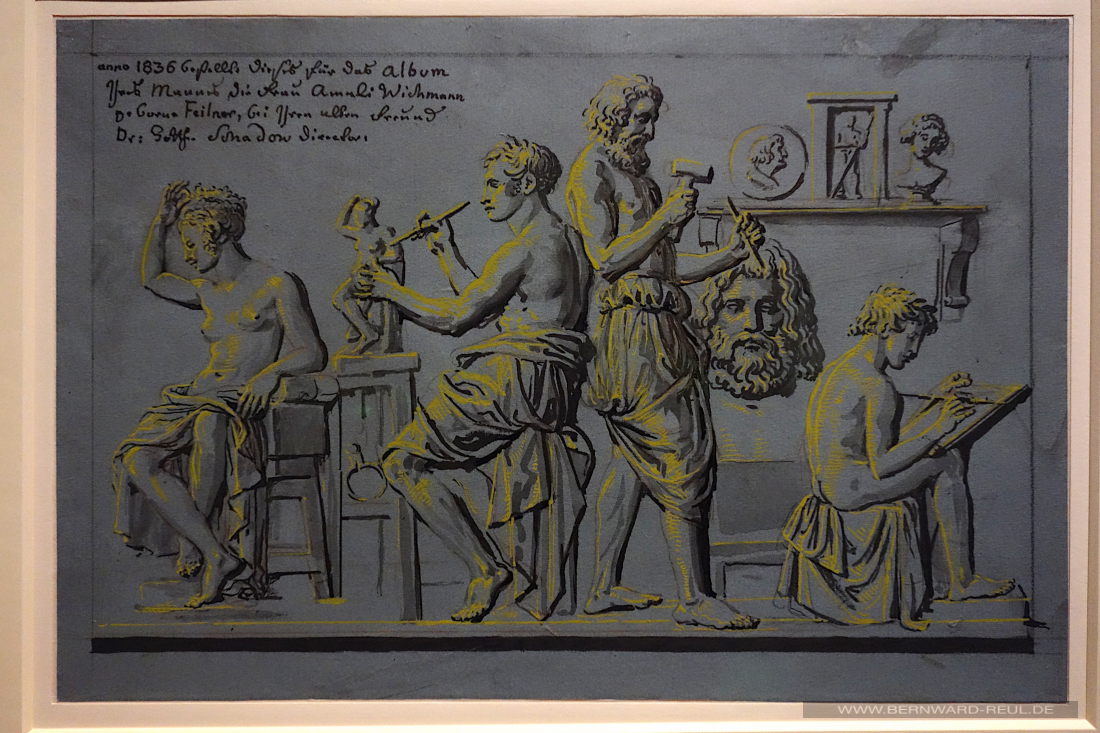 anno 1836 bestellte dieses für das Album
Ihres Mannes die Frau Amali Wichmann
Feilner, bei Ihren alten Freund
Dr: Gottfr. Schadow Director.
WWW.BERNWARD-REUL.DE